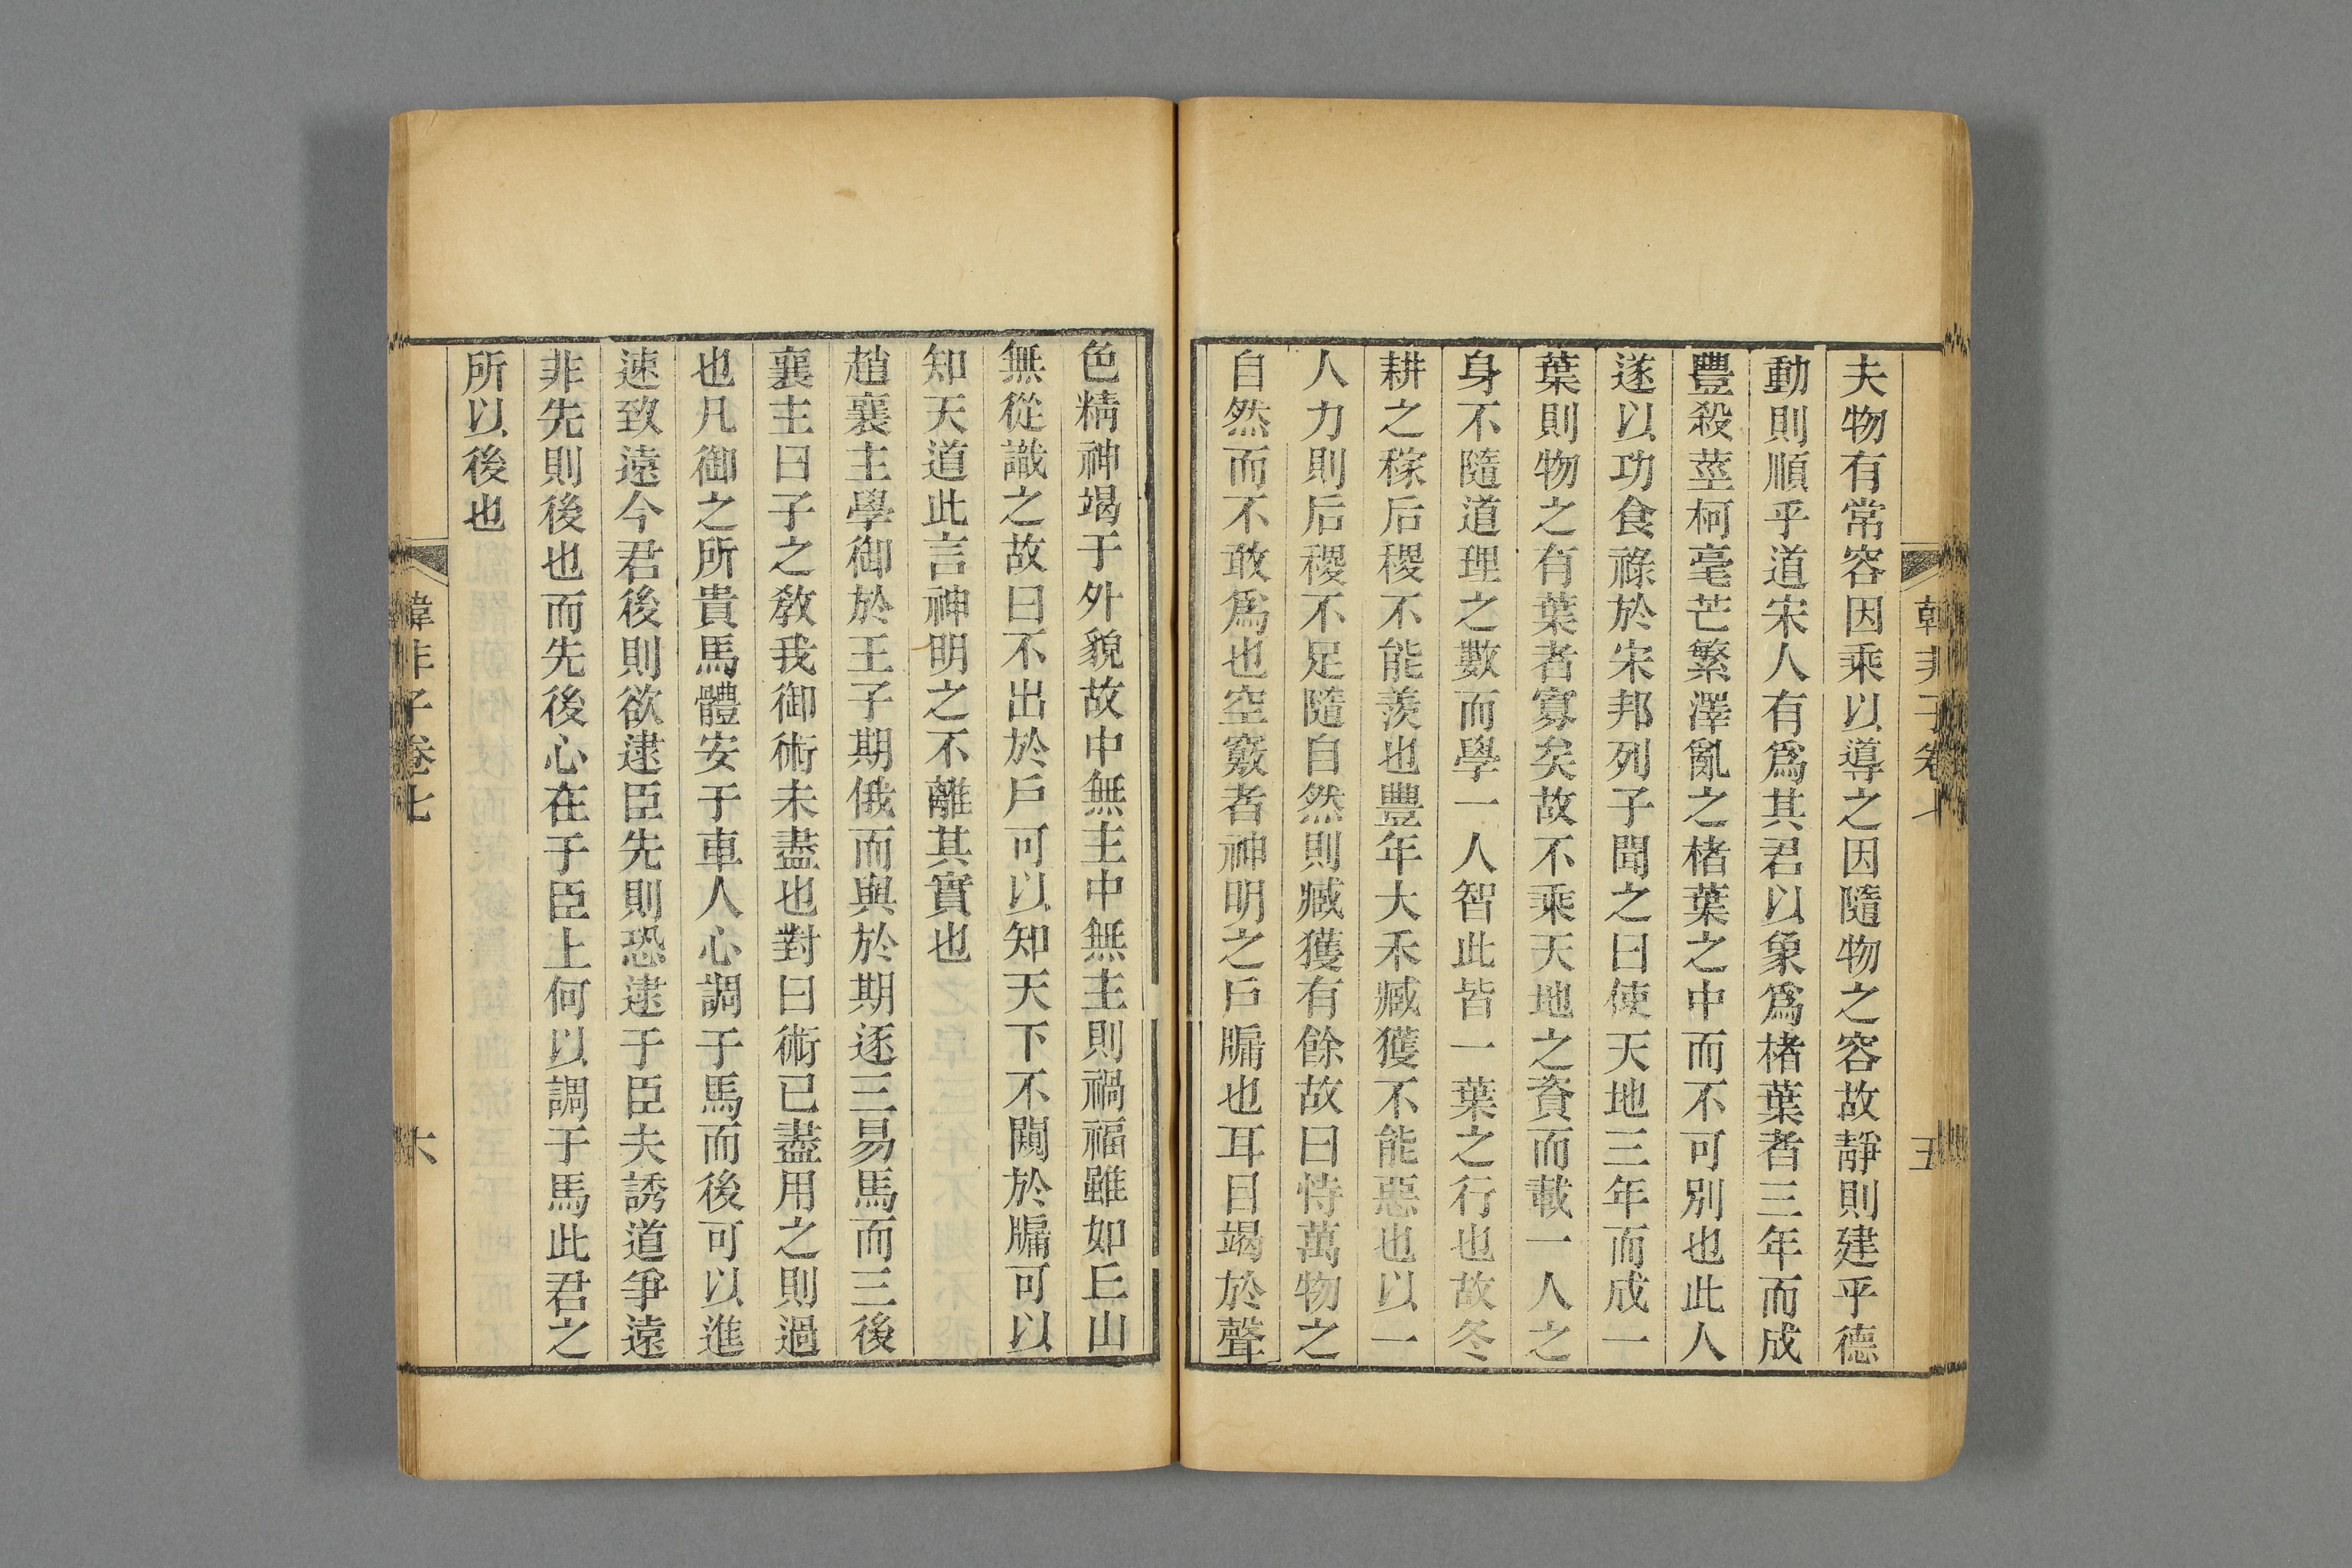 韓非子卷七
五
夫物有常容因乘以導之因隨物之容故靜則建乎德
動則順乎道宋人有爲其君以象爲楮葉者三年而成
豐殺莖柯毫芒繁澤亂之楮葉之中而不可別也此人
遂以功食祿於宋邦列子聞之曰使天地三年而成一
葉則物之有葉者寡矣故不乘天地之資而載一人之
身不隨道理之數而學一人智此皆一葉之行也故冬
耕之稼后稷不能羨也豐年大禾臧獲不能惡也以一
人力則后稷不足隨自然則臧獲有餘故曰恃萬物之
自然而不敢爲也空竅者神明之戶牖也耳目竭於聲
色精神竭于外貌故中無主中無主則禍福雖如丘山
無從識之故曰不出於戶可以知天下不闚於牖可以
知天道此言神明之不離其實也
趙襄主學御於王子期俄而與於期逐三易馬而三後
襄主曰子之敎我御術未盡也對曰術已盡用之則過
也凡御之所貴馬體安于車人心調于馬而後可以進
速致遠今君後則欲逮臣先則恐逮于臣夫誘道爭遠
非先則後也而先後心在于臣上何以調于馬此君之
所以後也
韓非子卷七
六